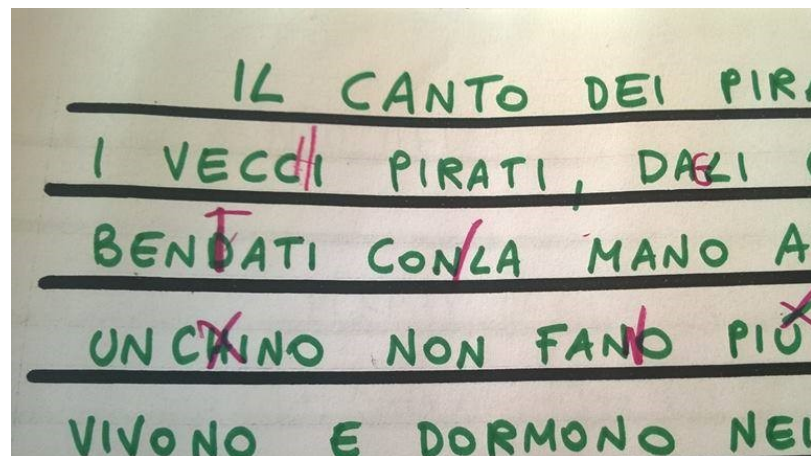 IL CANTO DEI PIRA
I VECCHI PIRATI, DAGLI
BENDATI CON LA MANO A
UN CHINO NON FANNO PIÙ
VIVONO E DORMONO NEL